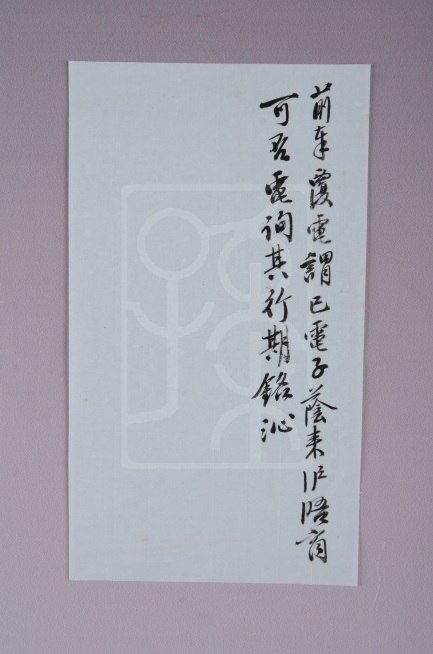 前奉覆電謂已電子蔭来沪晤商
可否電詢其行期銘沁